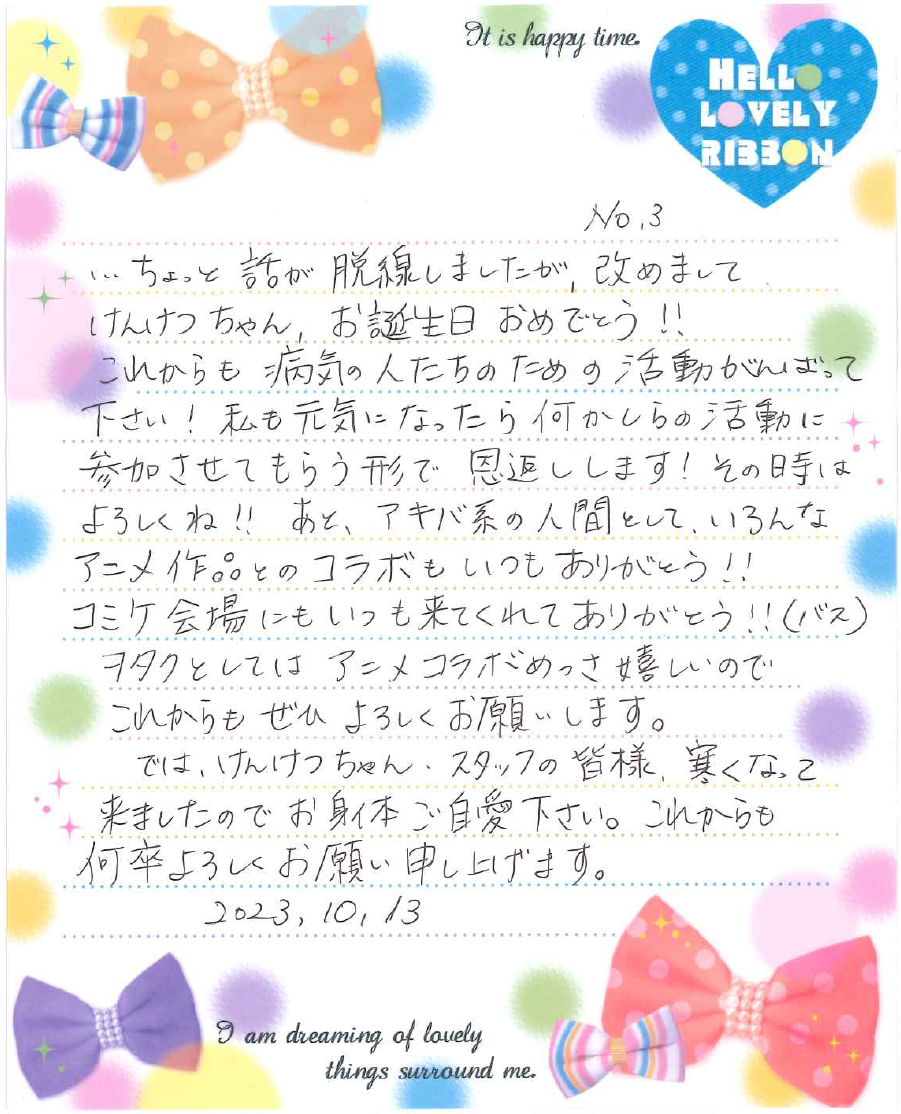 It is happy time.
HELLO
LOVELY
RIBBON
No.3
…ちょっと話が脱線しましたが、改めまして
けんけつちゃん、お誕生日おめでとう!!
これからも病気の人たちのための活動がんばって
下さい!私も元気になったら何かしらの活動に
参加させてもらう形で恩返しします!その時は
よろしくね!!あと、アキバ系の人間として、いろんな
アニメ作品とのコラボもいつもありがとう!!
コミケ会場にもいつも来てくれてありがとう!!(バス)
ヲタクとしてはアニメコラボめっさ嬉しいので
これからもぜひよろしくお願いします。
では、けんけつちゃん・スタッフの皆様、寒くなって
来ましたのでお身体ご自愛下さい。これからも
何卒よろしくお願い申し上げます。
2023,10,13
I am dreaming of lovely
things surround me.